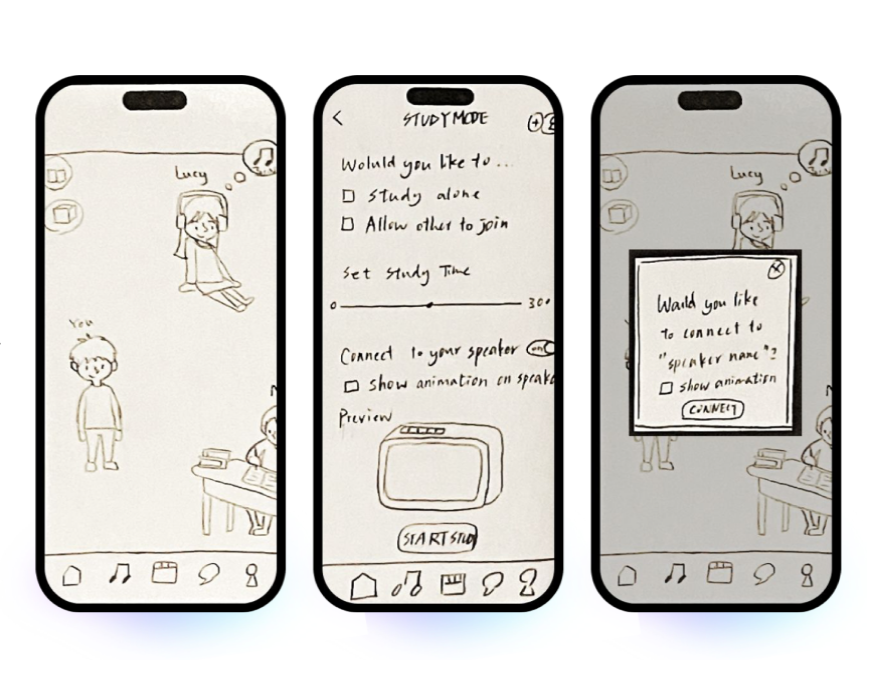 Lucy
You
STUDY MODE
Woluld you like to ...
Study alone
Allow other to join
Set Study Time
0
Connect to your speaker
Show animation on speake
Preview
START STUD
Lucy
Would you like
to connect to
"speaker name"?
show animation
CONNECT